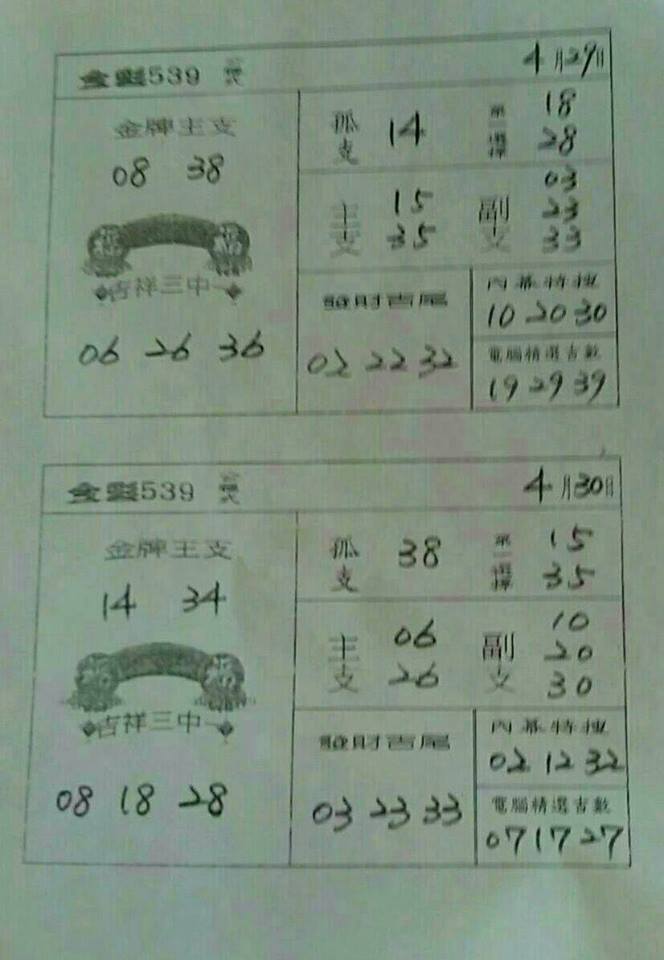 金彩539
4月29日
金牌主支
08 38
吉祥三中一
06 26 36
孤支 14
第一選擇 18 28
主支 15 35
副支 03 23 33
發財吉尾
02 22 32
內幕特搜
10 20 30
電腦精選吉數
19 29 39
金彩539
4月30日
金牌主支
14 34
吉祥三中一
08 18 28
孤支 38
第一選擇 15 35
主支 06 26
副支 10 20 30
發財吉尾
03 23 33
內幕特搜
02 12 32
電腦精選吉數
07 17 27